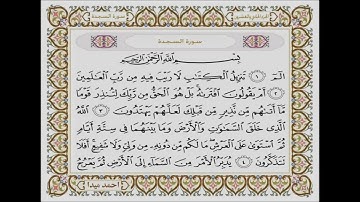 سورة السجدة
سورة السجدة
بِسْمِ اللَّهِ الرَّحْمَٰنِ الرَّحِيمِ
الٓمٓ ١ تَنزِيلُ الْكِتَٰبِ لَا رَيْبَ فِيهِ مِن رَّبِّ الْعَٰلَمِينَ
٢ أَمْ يَقُولُونَ افْتَرَىٰهُ بَلْ هُوَ الْحَقُّ مِن رَّبِّكَ لِتُنذِرَ قَوْمًا
مَّا أَتَىٰهُم مِّن نَّذِيرٍ مِّن قَبْلِكَ لَعَلَّهُمْ يَهْتَدُونَ ٣ اللَّهُ
الَّذِي خَلَقَ السَّمَٰوَٰتِ وَالْأَرْضَ وَمَا بَيْنَهُمَا فِي سِتَّةِ أَيَّامٍ
ثُمَّ اسْتَوَىٰ عَلَى الْعَرْشِ مَا لَكُم مِّن دُونِهِ مِن وَلِيٍّ وَلَا شَفِيعٍ أَفَلَا
تَتَذَكَّرُونَ ٤ يُدَبِّرُ الْأَمْرَ مِنَ السَّمَاءِ إِلَى الْأَرْضِ ثُمَّ يَعْرُجُ